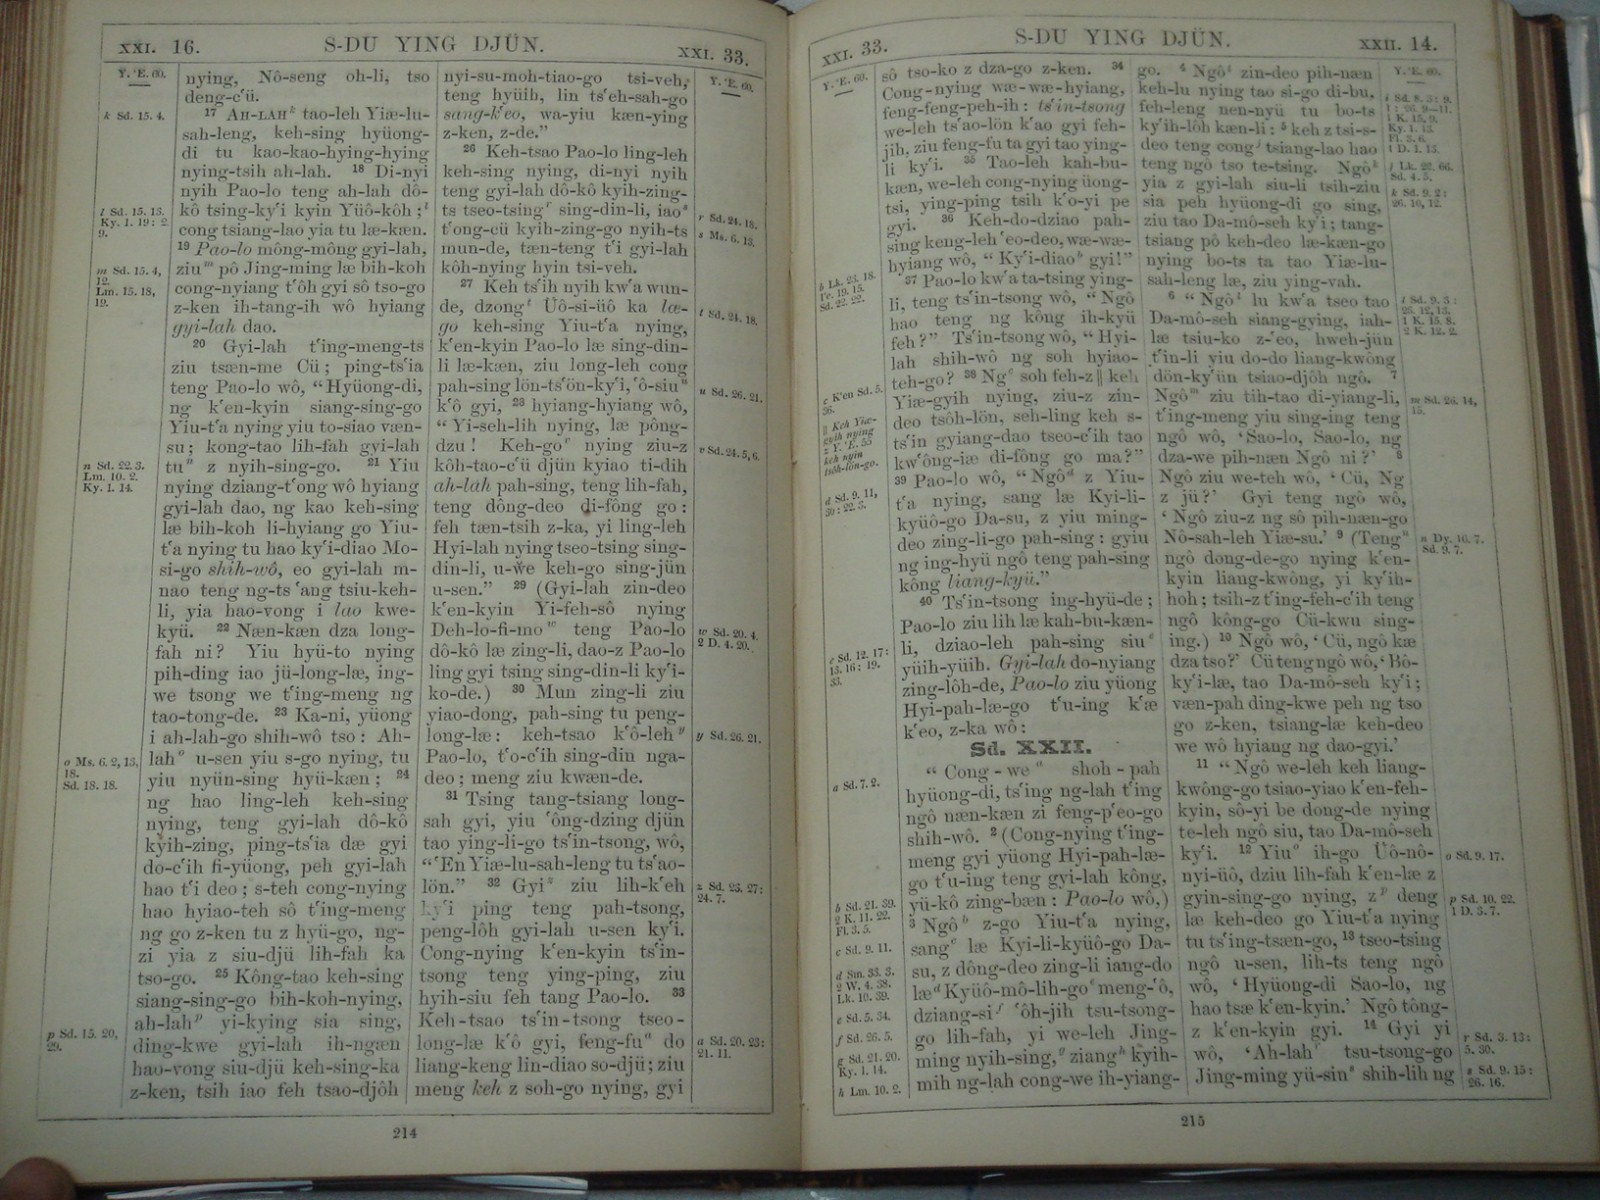 XXI. 16.
S-DU YING DJÜN.
XXI. 33.
Y. ‘E. 60.
k Sd. 15. 4.
l Sd. 15. 13.
Ky. 1. 19: 2
9.
m Sd. 15. 4,
12.
Lm. 15. 18,
19.
n Sd. 22. 3.
Lm. 10. 2.
Ky. 1. 14.
o Ms. 6. 2, 13,
18.
Sd. 18. 18.
p Sd. 15. 20,
29.
nying, Nô-seng oh-li, tso
deng-c‘ü.
17 AH-LAHk tao-leh Yiæ-lu-
sah-leng, keh-sing hyüong-
di tu kao-kao-hying-hying
nying-tsih ah-lah. 18 Di-nyi
nyih Pao-lo teng ah-lah dô-
kô tsing-ky‘i kyin Yüô-kôh;l
cong tsiang-lao yia tu læ-kæn.
19 Pao-lo mông-mông gyi-lah,
zium pô Jing-ming læ bih-koh
cong-nyiang t‘ôh gyi sô tso-go
z-ken ih-tang-ih wô hyiang
gyi-lah dao.
20 Gyi-lah t‘ing-meng-ts
ziu tsæn-me Cü; ping-ts‘ia
teng Pao-lo wô, “Hyüong-di,
ng k‘en-kyin siang-sing-go
Yiu-t‘a nying yiu to-siao væn-
su; kong-tao lih-fah gyi-lah
tun z nyih-sing-go. 21 Yiu
nying dziang-t‘ong wô hyiang
gyi-lah dao, ng kao keh-sing
læ bih-koh li-hyiang go Yiu-
t‘a nying tu hao ky‘i-diao Mo-
si-go shih-wô, eo gyi-lah m-
nao teng ng-ts ‘ang tsiu-keh-
li, yia hao-vong i lao kwe-
kyü. 22 Næn-kæn dza long-
fah ni? Yiu hyü-to nying
pih-ding iao jü-long-læ, ing-
we tsong we t‘ing-meng ng
tao-tong-de. 23 Ka-ni, yüong
i ah-lah-go shih-wô tso: Ah-
laho u-sen yiu s-go nying, tu
yiu nyün-sing hyü-kæn; 24
ng hao ling-leh keh-sing
nying, teng gyi-lah dô-kô
kyih-zing, ping-ts‘ia dæ gyi
do-c‘ih fi-yüong, peh gyi-lah
hao t‘i deo; s-teh cong-nying
hao hyiao-teh sô t‘ing-meng
ng go z-ken tu z hyü-go, ng-
zi yia z siu-djü lih-fah ka
tso-go. 25 Kông-tao keh-sing
siang-sing-go bih-koh-nying,
ah-lahp yi-kying sia sing,
ding-kwe gyi-lah ih-ngæn
hao-vong siu-djü keh-sing-ka
z-ken, tsih iao feh tsao-djôh
nyi-su-moh-tiao-go tsi-veh,
teng hyüih, lin ts‘eh-sah-go
sang-k‘eo, wa-yiu kæn-ying
z-ken, z-de.”
26 Keh-tsao Pao-lo ling-leh
keh-sing nying, di-nyi nyih
teng gyi-lah dô-kô kyih-zing-
ts tseo-tsingr sing-din-li, iaos
t‘ong-cü kyih-zing-go nyih-ts
mun-de, tæn-teng t‘i gyi-lah
kôh-nying hyin tsi-veh.
27 Keh ts‘ih nyih kw‘a wun-
de, dzongt Üô-si-üô ka læ-
go keh-sing Yiu-t‘a nying,
k‘en-kyin Pao-lo læ sing-din-
li læ-kæn, ziu long-leh cong
pah-sing lön-ts‘ön-ky‘i, ‘ô-siuu
k‘ô gyi, 28 hyiang-hyiang wô,
“Yi-seh-lih nying, læ pông-
dzu! Keh-gov nying ziu-z
kôh-tao-c‘ü djün kyiao ti-dih
ah-lah pah-sing, teng lih-fah,
teng dông-deo di-fông go:
feh tæn-tsih z-ka, yi ling-leh
Hyi-lah nying tseo-tsing sing-
din-li, u-we keh-go sing-jün
u-sen.” 29 (Gyi-lah zin-deo
k‘en-kyin Yi-feh-sô nying
Deh-lo-fi-mow teng Pao-lo
dô-kô læ zing-li, dao-z Pao-lo
ling gyi tsing sing-din-li ky‘i-
ko-de.) 30 Mun zing-li ziu
yiao-dong, pah-sing tu peng-
long-læ: keh-tsao k‘ô-lehy
Pao-lo, t‘o-c‘ih sing-din nga-
deo; meng ziu kwæn-de.
31 Tsing tang-tsiang long-
sah gyi, yiu ‘ông-dzing djün
tao ying-li-go ts‘in-tsong, wô,
“‘En Yiæ-lu-sah-leng tu ts‘ao-
lön.” 32 Gyiz ziu lih-k‘eh
ky‘i ping teng pah-tsong,
peng-lôh gyi-lah u-sen ky‘i.
Cong-nying k‘en-kyin ts‘in-
tsong teng ying-ping, ziu
hyih-siu feh tang Pao-lo. 33
Keh-tsao ts‘in-tsong tseo-
long-læ k‘ô gyi, feng-fua do
liang-keng lin-diao so-djü; ziu
meng keh z soh-go nying, gyi
Y. ‘E. 60.
r Sd. 24. 18.
s Ms. 6. 13.
t Sd. 24. 18.
u Sd. 26. 21.
v Sd. 24. 5, 6.
w Sd. 20. 4.
2 D. 4. 20.
y Sd. 26. 21.
z Sd. 23. 27:
24. 7.
a Sd. 20. 23:
21. 11.
214
XXI. 33.
S-DU YING DJÜN.
XXII. 14.
Y. ‘E. 60.
b Lk. 23. 18.
Sd. 22. 22.
c K‘en Sd. 5.
36.
‖ Keh Yiæ-
gyih nying
z Y. ‘E. 55
keh nyin
tsôh-lön-go.
d Sd. 9. 11,
30: 22. 3.
e Sd. 12. 17:
13. 16: 19.
33.
a Sd. 7. 2.
b Sd. 21. 39.
2 K. 11. 22.
Fl. 3. 5.
c Sd. 9. 11.
d Sm. 33. 3.
2 W. 4. 38.
Lk. 10. 39.
e Sd. 5. 34.
f Sd. 26. 5.
g Sd. 21. 20.
Ky. 1. 14.
h Lm. 10. 2.
sô tso-ko z dza-go z-ken. 34
Cong-nying wæ-wæ-hyiang,
feng-feng-peh-ih: ts‘in-tsong
we-leh ts‘ao-lön k‘ao gyi feh-
jih, ziu feng-fu ta gyi tao ying-
li ky‘i. 35 Tao-leh kah-bu-
kæn, we-leh cong-nying üong-
tsi, ying-ping tsih k‘o-yi pe
gyi. 36 Keh-do-dziao pah-
sing keng-leh ‘eo-deo, wæ-wæ-
hyiang wô, “Ky‘i-diaob gyi!”
37 Pao-lo kw‘a ta-tsing ying-
li, teng ts‘in-tsong wô, “Ngô
hao teng ng kông ih-kyü
feh?” Ts‘in-tsong wô, “Hyi-
lah shih-wô ng soh hyiao-
teh-go? 38 Ngc soh feh-z ‖ keh
Yiæ-gyih nying, ziu-z zin-
deo tsôh-lön, seh-ling keh s-
ts‘in gyiang-dao tseo-c‘ih tao
kw‘ông-iæ di-fông go ma?”
39 Pao-lo wô, “Ngôd z Yiu-
t‘a nying, sang læ Kyi-li-
kyüô-go Da-su, z yiu ming-
deo zing-li-go pah-sing: gyiu
ng ing-hyü ngô teng pah-sing
kông liang-kyü.”
40 Ts‘in-tsong ing-hyü-de;
Pao-lo ziu lih læ kah-bu-kæn-
li, dziao-leh pah-sing siue
yüih-yüih. Gyi-lah do-nyiang
zing-lôh-de, Pao-lo ziu yüong
Hyi-pah-læ-go t‘u-ing k‘æ
k‘eo, z-ka wô:
Sd. XXII.
“Cong-wea shoh-pah
hyüong-di, ts‘ing ng-lah t‘ing
ngô næn-kæn zi feng-p‘eo-go
shih-wô. 2 (Cong-nying t‘ing-
meng gyi yüong Hyi-pah-læ-
go t‘u-ing teng gyi-lah kông,
yü-kô zing-bæn: Pao-lo wô,)
3 Ngôb z-go Yiu-t‘a nying,
sangc læ Kyi-li-kyüô-go Da-
su, z dông-deo zing-li iang-do
læd Kyüô-mô-lih-goe meng-‘ô,
dziang-sif ‘ôh-jih tsu-tsong-
go lih-fah, yi we-leh Jing-
ming nyih-sing,g ziangh kyih-
mih ng-lah cong-we ih-yiang-
go. 4 Ngôi zin-deo pih-næn
keh-lu nying tao si-go di-bu,
feh-leng nen-nyü tu bo-ts
ky‘ih-lôh kæn-li: 5 keh z tsi-s-
deo teng congj tsiang-lao hao
teng ngô tso te-tsing. Ngôk
yia z gyi-lah siu-li tsih-ziu
sia peh hyüong-di go sing,
ziu tao Da-mô-seh ky‘i; tang-
tsiang pô keh-deo læ-kæn-go
nying bo-ts ta tao Yiæ-lu-
sah-leng læ, ziu ying-vah.
6 “Ngôl lu kw‘a tseo tao
Da-mô-seh siang-gying, iah-
læ tsiu-ko z-‘eo, hweh-jün
t‘in-li yiu do-do liang-kwông
dön-ky‘ün tsiao-djôh ngô. 7
Ngôm ziu tih-tao di-yiang-li,
t‘ing-meng yiu sing-ing teng
ngô wô, ‘Sao-lo, Sao-lo, ng
dza-we pih-næn Ngô ni?’ 8
Ngô ziu we-teh wô, ‘Cü, Ng
z jü?’ Gyi teng ngô wô,
‘Ngô ziu-z ng sô pih-næn-go
Nô-sah-leh Yiæ-su.’ 9 (Tengn
ngô dong-de-go nying k‘en-
kyin liang-kwông, yi ky‘ih-
hoh; tsih-z t‘ing-feh-c‘ih teng
ngô kông-go Cü-kwu sing-
ing.) 10 Ngô wô, ‘Cü, ngô kæ
dza tso?’ Cü teng ngô wô, ‘Bô-
ky‘i-læ, tao Da-mô-seh ky‘i;
væn-pah ding-kwe peh ng tso
go z-ken, tsiang-læ keh-deo
we wô hyiang ng dao-gyi.’
11 “Ngô we-leh keh liang-
kwông-go tsiao-yiao k‘en-feh-
kyin, sô-yi be dong-de nying
te-leh ngô siu, tao Da-mô-seh
ky‘i. 12 Yiuo ih-go Üô-nô-
nyi-üô, dziu lih-fah k‘en-læ z
gyin-sing-go nying, zp deng
læ keh-deo go Yiu-t‘a nying
tu ts‘ing-tsæn-go, 13 tseo-tsing
ngô u-sen, lih-ts teng ngô
wô, ‘Hyüong-di Sao-lo, ng
hao tsæ k‘en-kyin.’ Ngô tông-
z k‘en-kyin gyi. 14 Gyi yi
wô, ‘Ah-lahr tsu-tsong-go
Jing-ming yü-sins shih-lih ng
Y. ‘E. 60.
i Sd. 8. 3: 9.
1: 26. 9—11.
1 K. 15. 9.
Ky. 1. 13.
Fl. 3. 6.
1 D. 1. 13.
j Lk. 22. 66.
Sd. 4. 5.
k Sd. 9. 2:
26. 10, 12.
l Sd. 9. 3:
26. 12, 13.
1 K. 15. 8.
2 K. 12. 2.
m Sd. 26. 14,
15.
n Dy. 10. 7.
Sd. 9. 7.
o Sd. 9. 17.
p Sd. 10. 22.
1 D. 3. 7.
r Sd. 3. 13:
5. 30.
s Sd. 9. 15:
26. 16.
215